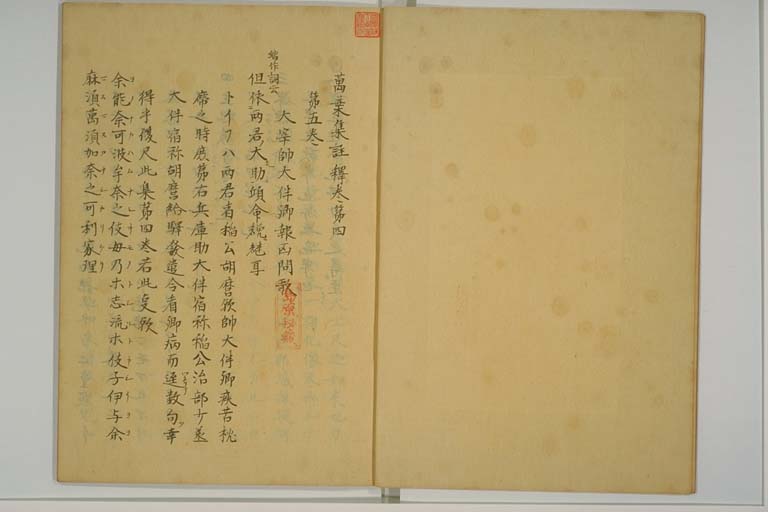 萬葉集註釋卷第四
第五卷
大宰帥大伴卿報凶問歌
端作詞云
但依兩君大助傾命纔継耳
トイフハ兩君者稲公胡麿歟帥大伴卿疾苦枕
席之時庶弟右兵庫助大伴宿祢稲公治部少丞
大伴宿祢胡麿給驛發遣令看卿病而逕數旬幸
得平復 此集第四卷若此叓歟
余能奈可波牟奈之伎母乃等志流等伎子伊与余
麻須萬須加奈之可利家理